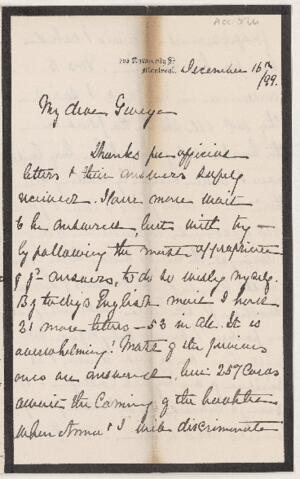 Acc. 576
University St
Montreal.
December 16th
/99.
My dear George
Thanks for official
letters & their answers safely
received. I have more mail
to be answered, but will try
by following the most appropriate
of yr answers, to do so wisely myself.
By today's English mail I have
31 more letters – 53 in all. It is
overwhelming! Most of the previous
ones are answered, but 257 Cards
await the coming of the
when Anna & I will discriminate